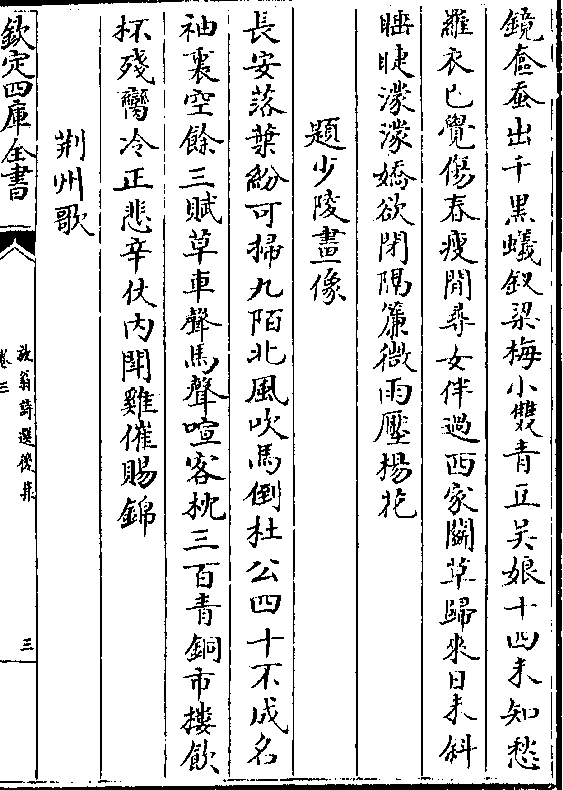 鏡奩蚕出千黒蟻釵梁梅小雙青豆吴娘十四未知愁
羅衣已覺傷春瘦閒尋女伴過西家鬭草歸來日未斜
睡睫濛濛嬌欲閉隔簾微雨壓楊花
題少陵畫像
長安落葉紛可掃九陌北風吹馬倒杜公四十不成名
袖裏空餘三賦草車聲馬聲喧客枕三百青銅市樓飲
杯殘胾冷正悲辛仗内鬭雞催賜錦
荆州歌
欽定四庫全書
放翁詩選後集
卷三
三